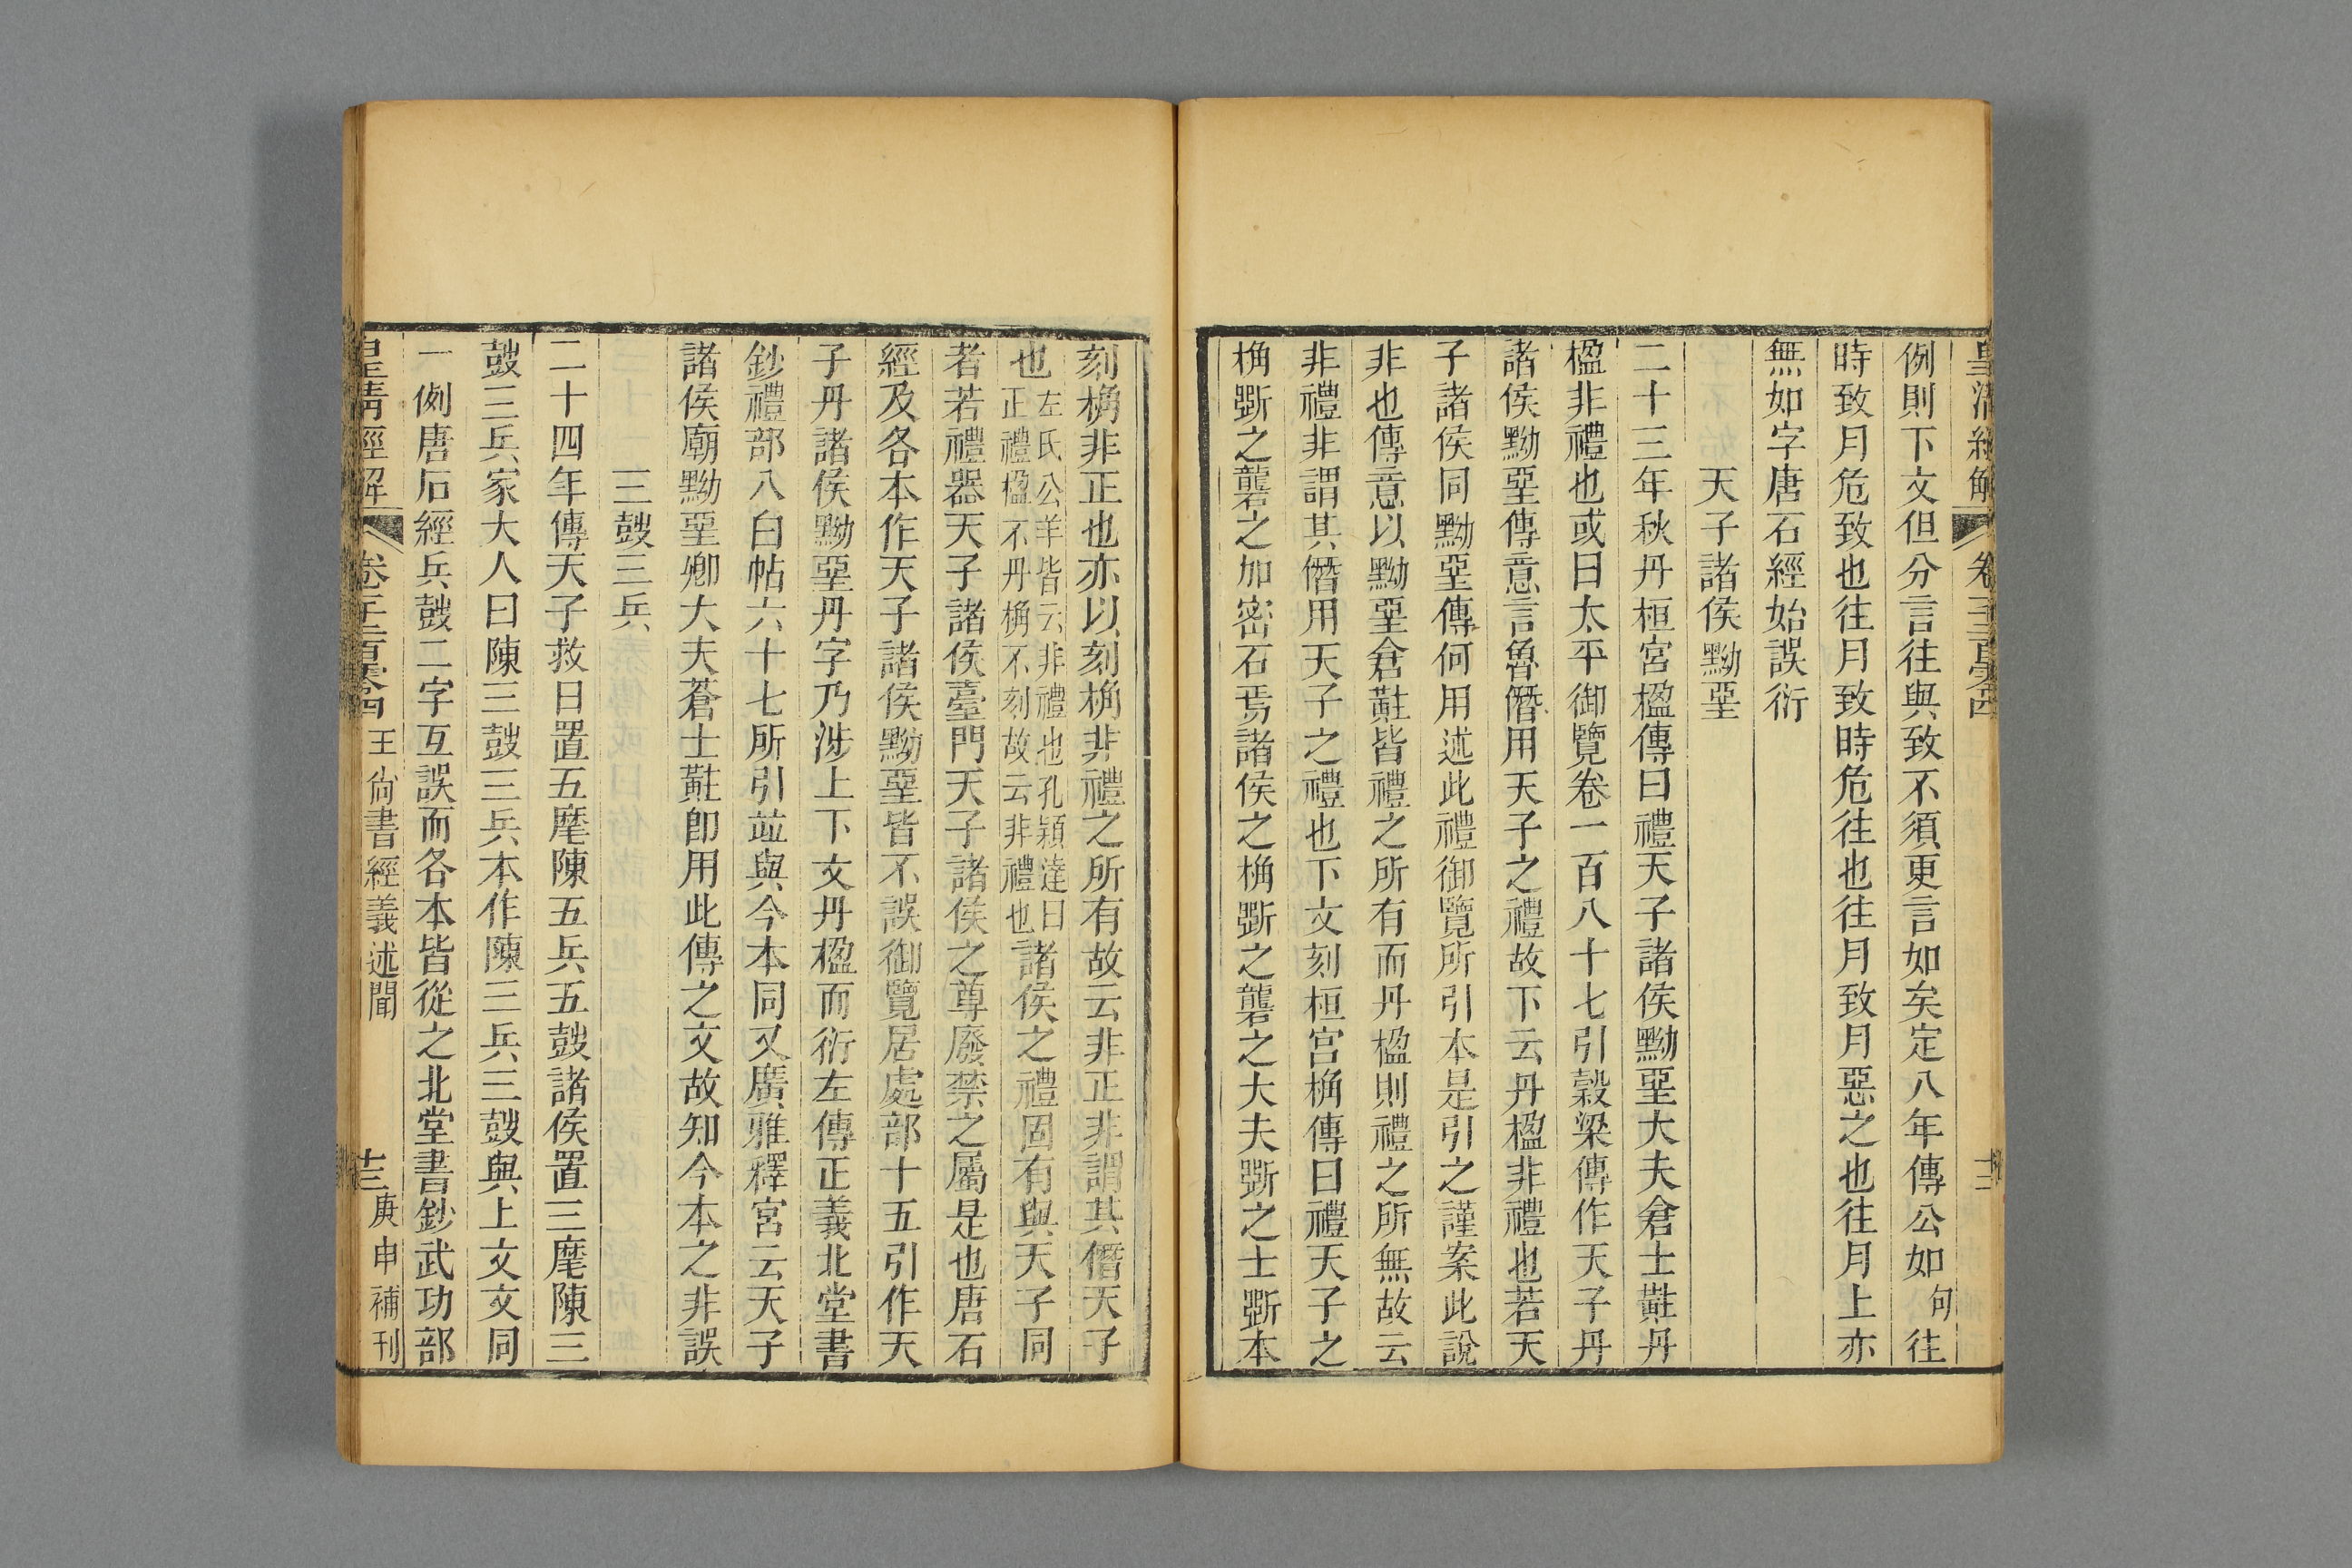 皇清經解 卷千二百零四 十二
例則下文但分言往與致不須更言如矣定八年傳公如句往
時致月危致也往月致時危往也往月致月惡之也往月上亦
無如字唐石經始誤衍
天子諸侯黝堊
二十三年秋丹桓宮楹傳曰禮天子諸侯黝堊大夫倉士黈丹
楹非禮也或曰太平御覽卷一百八十七引穀梁傳作天子丹
諸侯黝堊傳意言魯僭用天子之禮故下云丹楹非禮也若天
子諸侯同黝堊傳何用述此禮御覽所引本是引之謹案此說
非也傳意以黝堊倉黈皆禮之所有而丹楹則禮之所無故云
非禮非謂其僭用天子之禮也下文刻桓宮桷傳曰禮天子之
桷斲之礱之加密石焉諸侯之桷斲之礱之大夫斲之士斲本
刻桷非正也亦以刻桷非禮之所有故云非正非謂其僭天子
也左氏公羊皆云非禮也孔穎達曰正禮楹不丹桷不刻故云非禮也諸侯之禮固有與天子同
者若禮器天子諸侯臺門天子諸侯之尊廢禁之屬是也唐石
經及各本作天子諸侯黝堊皆不誤御覽居處部十五引作天
子丹諸侯黝堊丹字乃涉上下文丹楹而衍左傳正義北堂書
鈔禮部八白帖六十七所引竝與今本同又廣雅釋宮云天子
諸侯廟黝堊卿大夫蒼士黈卽用此傳之文故知今本之非誤
三鼓三兵
二十四年傳天子救日置五麾陳五兵五鼓諸侯置三麾陳三
鼓三兵家大人曰陳三鼓三兵本作陳三兵三鼓與上文文同
一例唐石經兵鼓二字互誤而各本皆從之北堂書鈔武功部
皇清經解 卷千二百零四 王尙書經義述聞 十三 庚申補刊